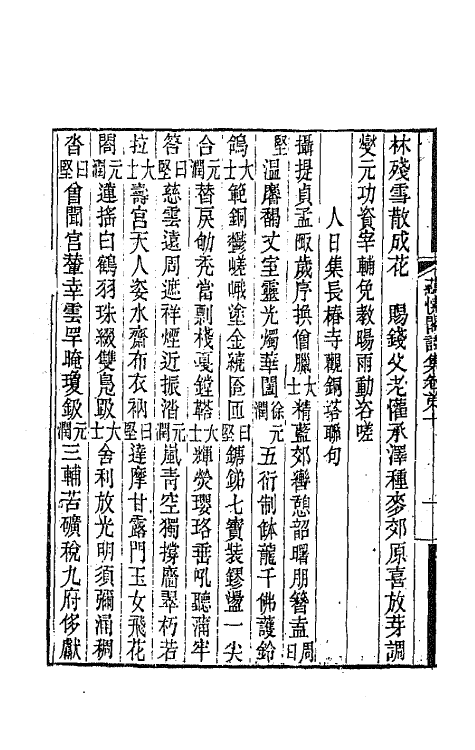 林殘雪散成花　賜錢父老懽承澤種麥郊原喜放芽調
燮元功資宰輔免教暘雨動咨嗟
人日集長椿寺觀銅塔聯句
攝提貞孟陬歲序换僧臘大士精藍郊轡憩韶曙朋簪盍周曰
堅溫麐丈室靈光燭華闥徐元潤五衍制鉢龍千佛護鈴
鴿大士範銅鬱嵯峨塗金繞匼匝曰堅鎕銻七寶裝鏐璗一尖
合元潤替戾劬禿當剽棧戛鏜鞳大士輝熒瓔珞垂吼聽蒲牢
答曰堅慈雲遠周遮祥煙近振潝元潤嵐靑空獨撐廧翠朽若
拉大士壽宮天人姿水齋布衣衲曰堅達摩甘露門玉女飛花
閤元潤蓮搖白鶴羽珠綴雙鳧趿大士舍利放光明須彌涌稠
沓曰堅曾聞宮輦幸雲罕晻瓊鈒元潤三輔苦礦稅九府侈獻
閣詩集卷第一
一